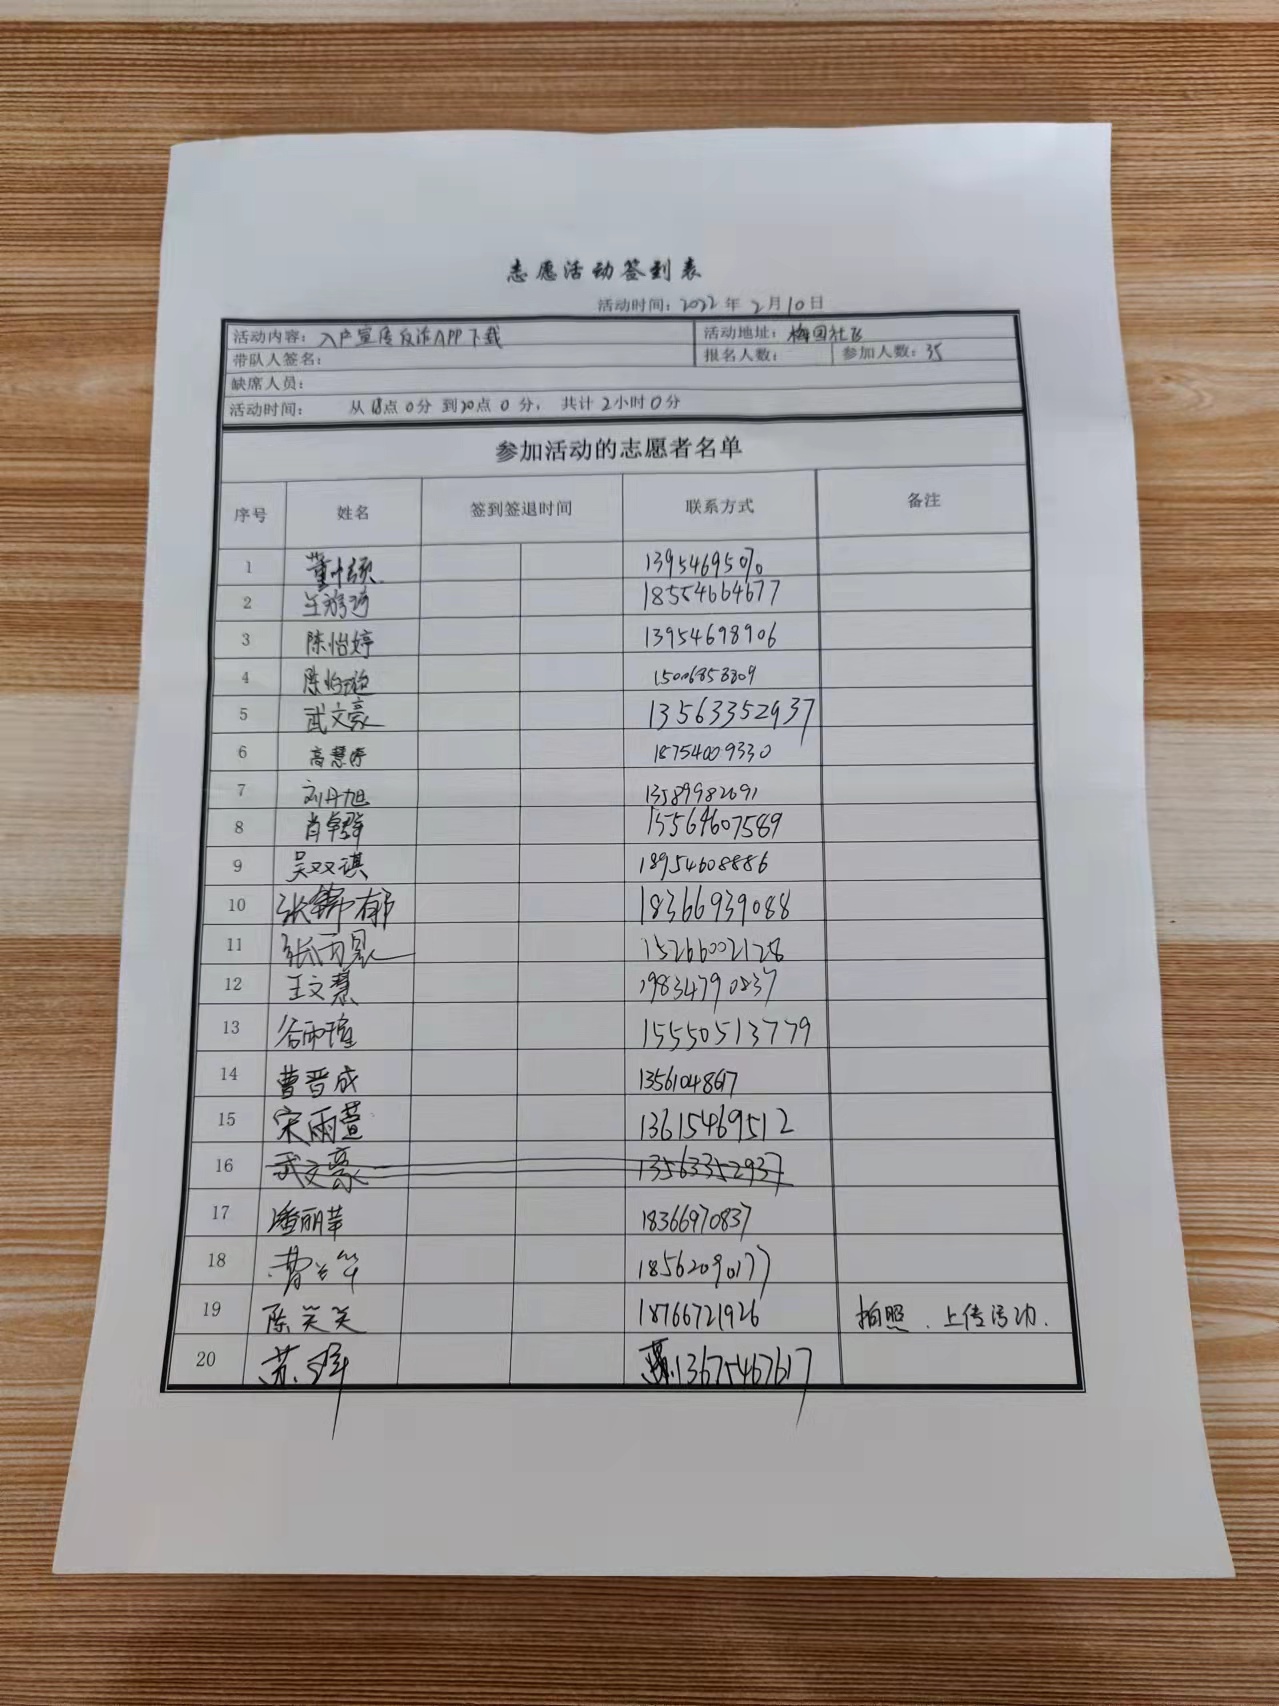 志愿活动签到表
活动时间：2022年2月10日
活动内容：入户宣传反诈APP下载 活动地址：梅园社区
带队人签名： 报名人数： 参加人数：35
缺席人员：
活动时间： 从18点0分 到20点0分， 共计2小时0分
参加活动的志愿者名单
序号 姓名 签到签退时间 联系方式 备注
1
2 18554664677
3 陈怡婷 13954698906
4 15006858809
5 武文豪 13563352937
6 18754009330
7 刘丹旭 13589982691
8 15564607589
9 吴双琪 18954608886
10 18366939088
11 15266002128
12 王文慧 19834790837
13 15550513779
14 曹晋成
15 宋雨萱 13615469512
16 武文豪 13563352937
17 潘丽苹 18366970837
18 18562090177
19 陈笑笑 18766721926 拍照、上传活动.
20 13675467617